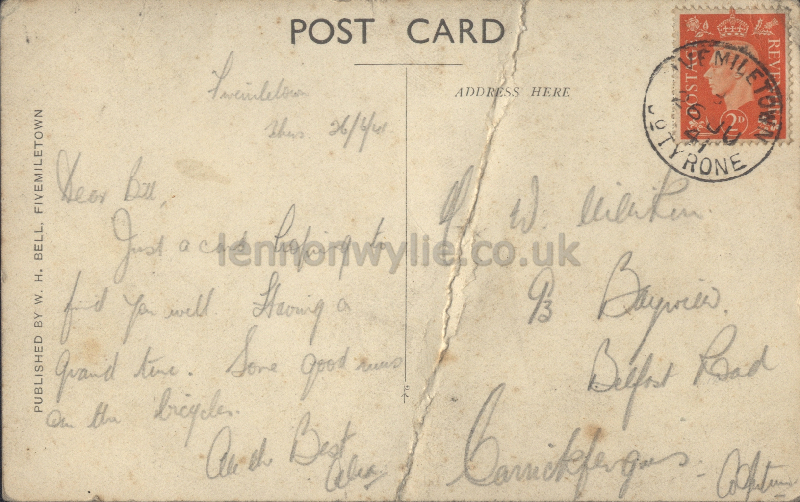 POST CARD
ADDRESS HERE
PUBLISHED BY W. H. BELL, FIVEMILETOWN
POSTAGE REVENUE
2D
FIVEMILETOWN
26 JU
41
CO TYRONE
Fivemiletown
Thurs 26/6/41
Dear Bill,
Just a card hoping to
find you well Having a
grand time. Some good runs
on the bicycles.
All the Best
W. Milliken.
Bayview.
Belfast Road
Carrickfergus.
Co Antrim
lennonwylie.co.uk